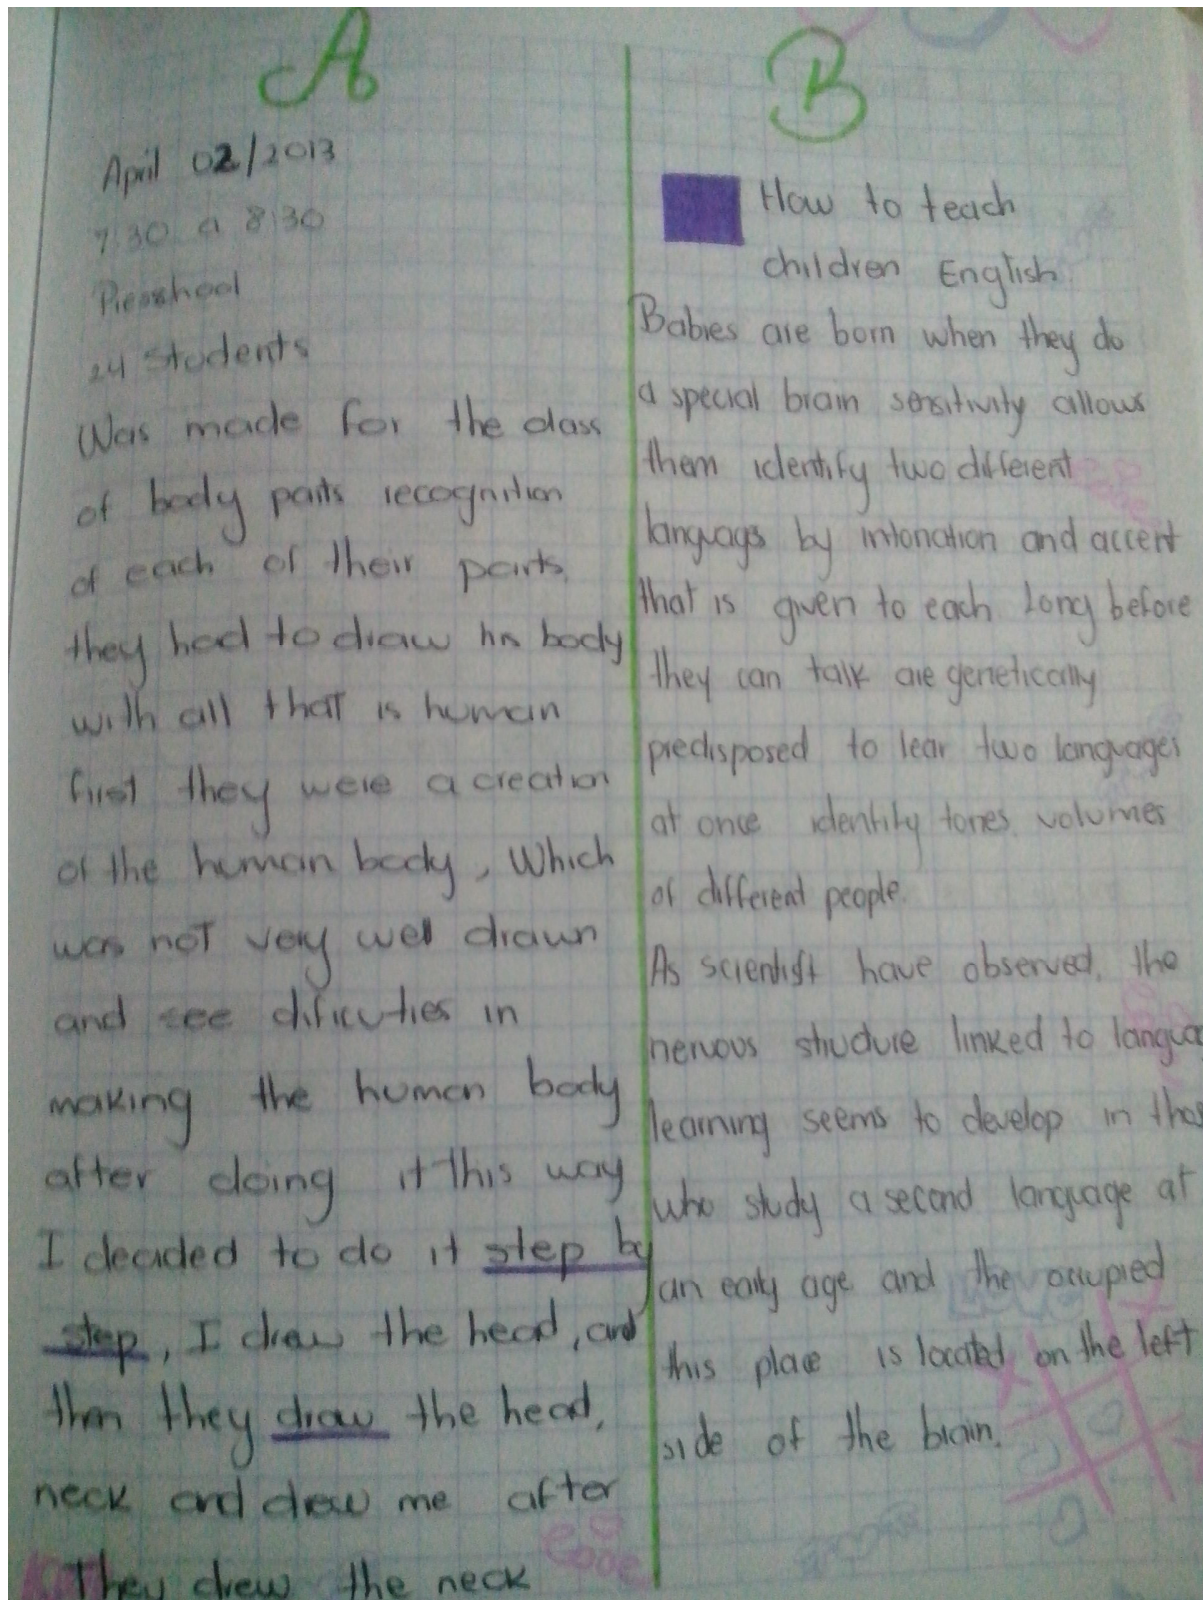 A
April 02/2013
7:30 a 8:30
Preeshool
24 Students
Was made for the class
of body parts recognition
of each of their parts,
they had to draw his body
with all that is human
first they were a creation
of the human body, Which
was not very well drawn
and see dificuties in
making the human body
after doing it this way
I decided to do it step by
step, I drew the head, and
then they draw the head,
neck and drew me after
They drew the neck
B
How to teach
children English
Babies are born when they do
a special brain sensitivity allows
them identify two different
languags by intonation and accent
that is given to each Long before
they can talk are genetically
predisposed to lear two languages
at once identify tones volumes
of different people.
As scientist have observed, the
nervous structure linked to langua
learning seems to develop in thos
who study a second language at
an early age and the occupied
this place is located on the left
side of the brain.